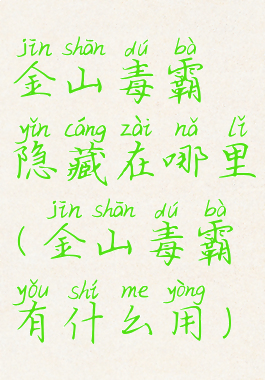 jīn shān dú bà
金山毒霸
yǐn cáng zài nǎ lǐ
隐藏在哪里
jīn shān dú bà
(金山毒霸
yǒu shí me yòng
有什么用)